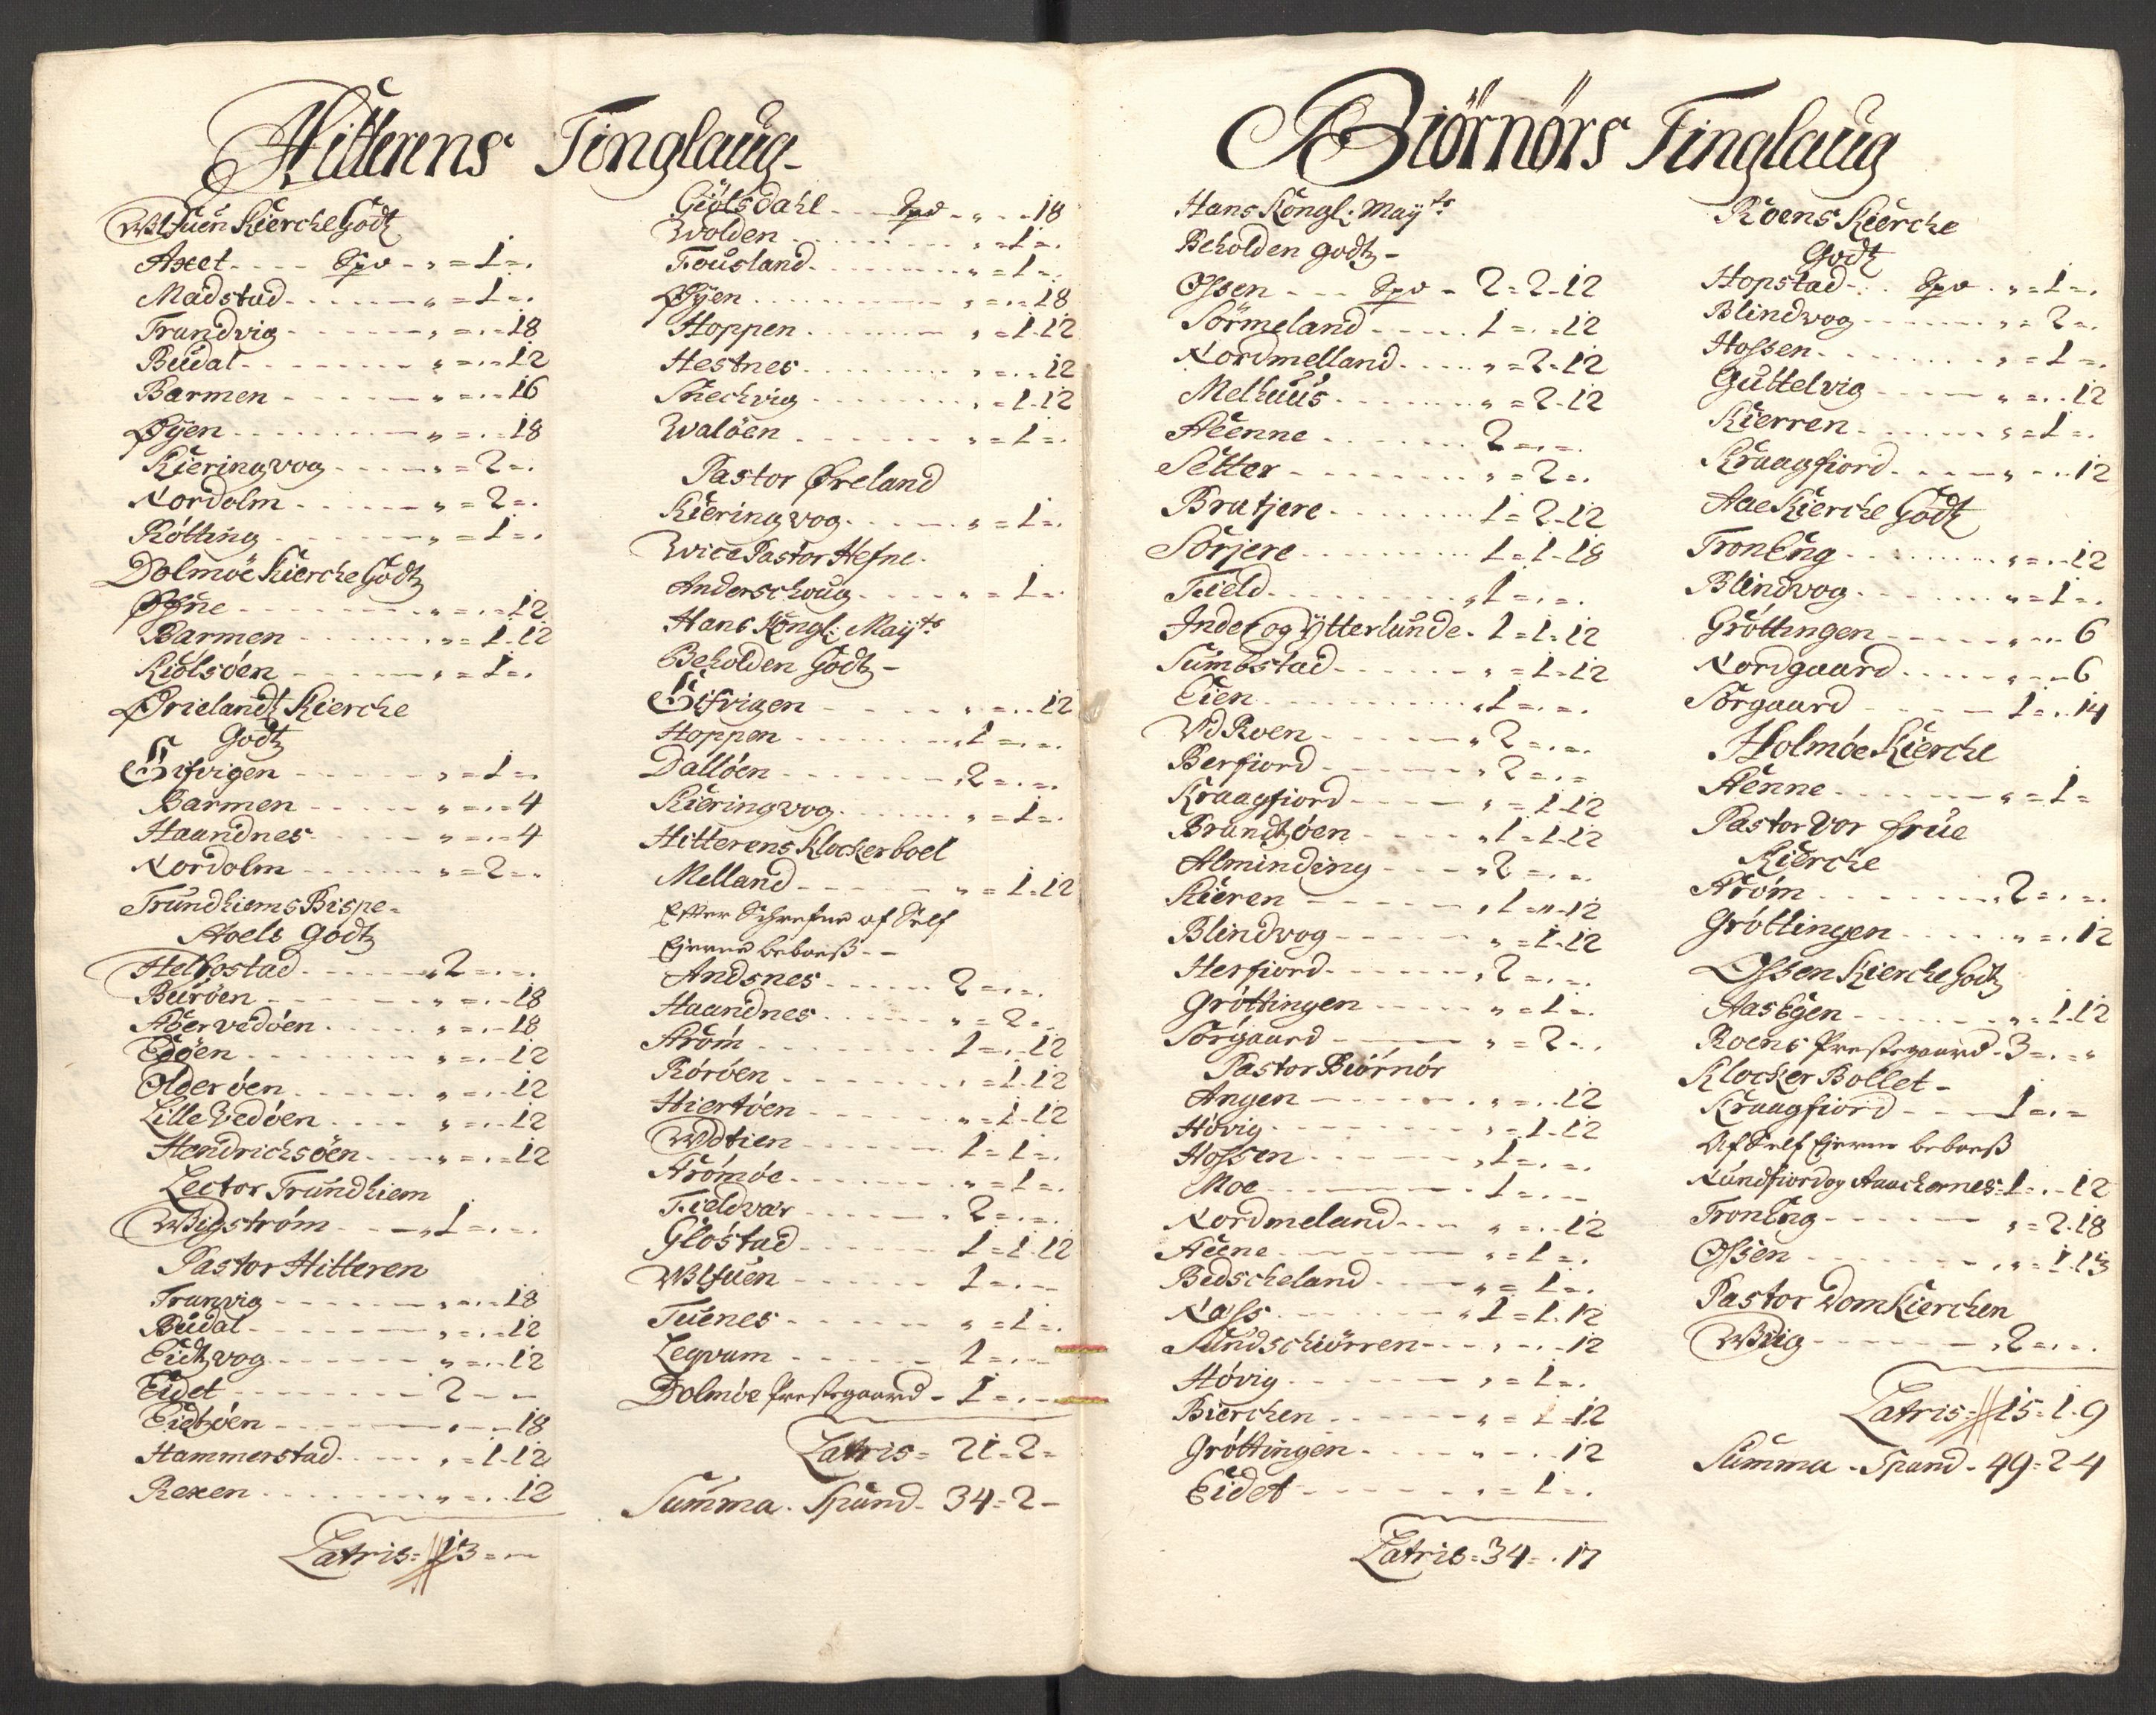 Hitterens Tinglaug
Ulfuen Kierche Godtz
Axet - - - - Spd - „ = 1 = .
Madstad - - - - „ = 1 = .
Trandvig - - - - „ = . = 18
Budal - - - - „ = . = 12
Barmen - - - - „ = . = 16
Øyen - - - - „ = . = 18
Kieringvog - - - - „ = 2 = .
Nordolm - - - - „ = 2 = .
Røtting - - - - „ = 1 = .
Dolmøe Kierche Godtz
Øfne - - - - „ = . = 12
Barmen - - - - „ = 1 - 12
Kiølsøen - - - - „ = 1 = .
Ørielandtz Kierche
Godtz
Gifvigen - - - - „ = 1 = .
Barmen - - - - „ = . = 4
Haandnes - - - - „ = . = 4
Nordolm - - - - „ = 2 = .
Trundhiems Bispe-
Stoels Godtz
Helbostad - - - - „ 2 = . = .
Burøen - - - - „ = . - 18
Aservedøen - - - - „ = . - 18
Edøen - - - - „ = . - 12
Olderøen - - - - „ = . - 12
Lille Vedøen - - - - „ = . - 12
Hendrichsøen - - - - „ = . = 12
Lector Trundhiem
Wigstrøm - - - - „ 1 = . = .
Pastor Hitteren
Tranvig - - - - „ = . = 18
Budal - - - - „ = . = 12
Eidtzvog - - - - „ = . - 12
Eidet - - - - 2 - -
Eidtzøen - - - - „ - . - 18
Hammerstad - - - - „ = 1 - 12
Rexen - - - - „ = . - 12
Latris = 13 = . -
Giølsdahl - - Spd - „ - . - 18
Wolden - - - - „ = 1 = .
Fousland - - - - „ = 1 = .
Øyen - - - - „ = . = 18
Hoppen - - - - „ = 1 - 12
Hestnes - - - - „ = . = 12
Snechvig - - - - „ = 1 - 12
Waløen - - - - „ = 1 = .
Pastor Øreland
Kieringvog - - - - „ = 1 = .
Wice Pastor Hefne.
Anderschoug - - - - „ = 1 = .
Hans Kongl: Mayts
Beholden Godtz -
Gifvigen - - - - „ = . - 12
Hoppen - - - - „ 1 = . = .
Dalløen - - - - „ 2 = . = .
Kieringvog - - - - „ = 1 = .
Hitterens Klockerboel
Melland - - - - „ = 1 = 12
Efter Schrefne af Self
Ejerne beboes - -
Andsnes - - - - 2 = . = .
Haandnes - - - - „ = 2 = .
Strøm - - - - 1 = . = 12
Rørøen - - - - „ = 1 - 12
Hiertøen - - - - „ = 1 - 12
Udtien - - - - 1 = 1 = .
Strømøe - - - - „ = 1 = .
Fieldvær - - - - 2 = . = .
Gløstad - - - - 1 = 1 - 12
Ulfuen - - - - 1 = . -
Tuenes - - - - „ = 1 = .
Legvam - - - - 1 = . -
Dolmøe Prestegaard - 1 = . -
Latris = 21 = 2 =
Summa - Spand - 34 = 2 -
Biørnørs Tinglaug
Hans Kongl: Mayts
Beholden godtz -
Ossen - - - Spd - 2 = 2 - 12
Sørmeland - - - - 1 = . = 12
Nordmelland - - - - „ = 2 - 12
Melhuus - - - - „ = 2 - 12
Stenne - - - - 2 = . = .
Setter - - - - „ = 2 = .
Bratjere - - - - 1 = 2 - 12
Sørjere - - - - 1 = 1 - 18
Field - - - - „ 1 = . = .
Inde og Ytterlunde - 1 = 1 = 12
Sumbstad - - - - „ = 1 - 12
Eien - - - - „ 1 = . = .
Vd Roen - - - - „ 2 = . = .
Berfiord - - - - „ 2 = . =
Kraagfiord - - - - „ = 1 - 12
Brandtzøen - - - - „ 1 = 1 - 12
Alminding - - - - „ 2 = . = .
Kieren - - - - „ 1 = „ - 12
Blindvog - - - - „ = 1 - 12
Herfiord - - - - „ 2 = . = .
Grøttingen - - - - „ = 1 = .
Sørgaard - - - - „ = 2 - .
Pastor Biørnør
Angen - - - - „ = . - 12
Høvig - - - - „ = 1 - 12
Hossen - - - - „ 1 = . = .
Moe - - - - 1 = . = -
Nordmeland - - - - „ = . - 12
Stene - - - - „ = 1 = .
Bedscheland - - - - „ = 1 = .
Nass - - - - „ 1 = 1 - 12
Sundschiørren - - - - „ - . - 12
Høvig - - - - „ = 1 = .
Bierchen - - - - „ = 1 = 12
Grøttingen - - - - „ - . - 12
Eidet - - - - „ = 1 = .
Latris = 34 = . 17
Roens Kierche
Godtz
Hopstad - - Spd - „ = 1 = .
Blindvog - - - - „ = 2 = .
Hossen - - - - „ = 1 = .
Guttelvig - - - - „ = . - 12
Kierren - - - - „ = 1 = .
Kraagfiord - - - - „ - . - 12
Aae Kierche Godtz
Troneng - - - - „ = . - 12
Blindvog - - - - „ = 1 = .
Grøttingen - - - - „ - . - 6
Nordgaard - - - - „ - . - 6
Sørgaard - - - - 1 = . 14
Holmøe Kierche
Stenne - - - - „ = 1 =
Pastor Vor frue
Kierche
Strøm - - - - „ 2 = . = .
Grøttingen - - - - „ = . 12
Ossen Kierche Godtz
Aasegen - - - - „ = 1 - 12
Roens Prestegaard - 3 = . = „
Klocker Bollet -
Kraagfiord - - - 1 = . =
Af Self Ejerne beboes
Nundfiord og Aauchernes = 1 = . - 12
Troneng - - - - „ = 2 - 18
Ossen - - - - „ = 1 - 13
Pastor Domkierchen
Wiig - - - - „ 2 = . = .
Latris = 15 = 1 - 9
Summa - Spand - 49 = 2 - 4